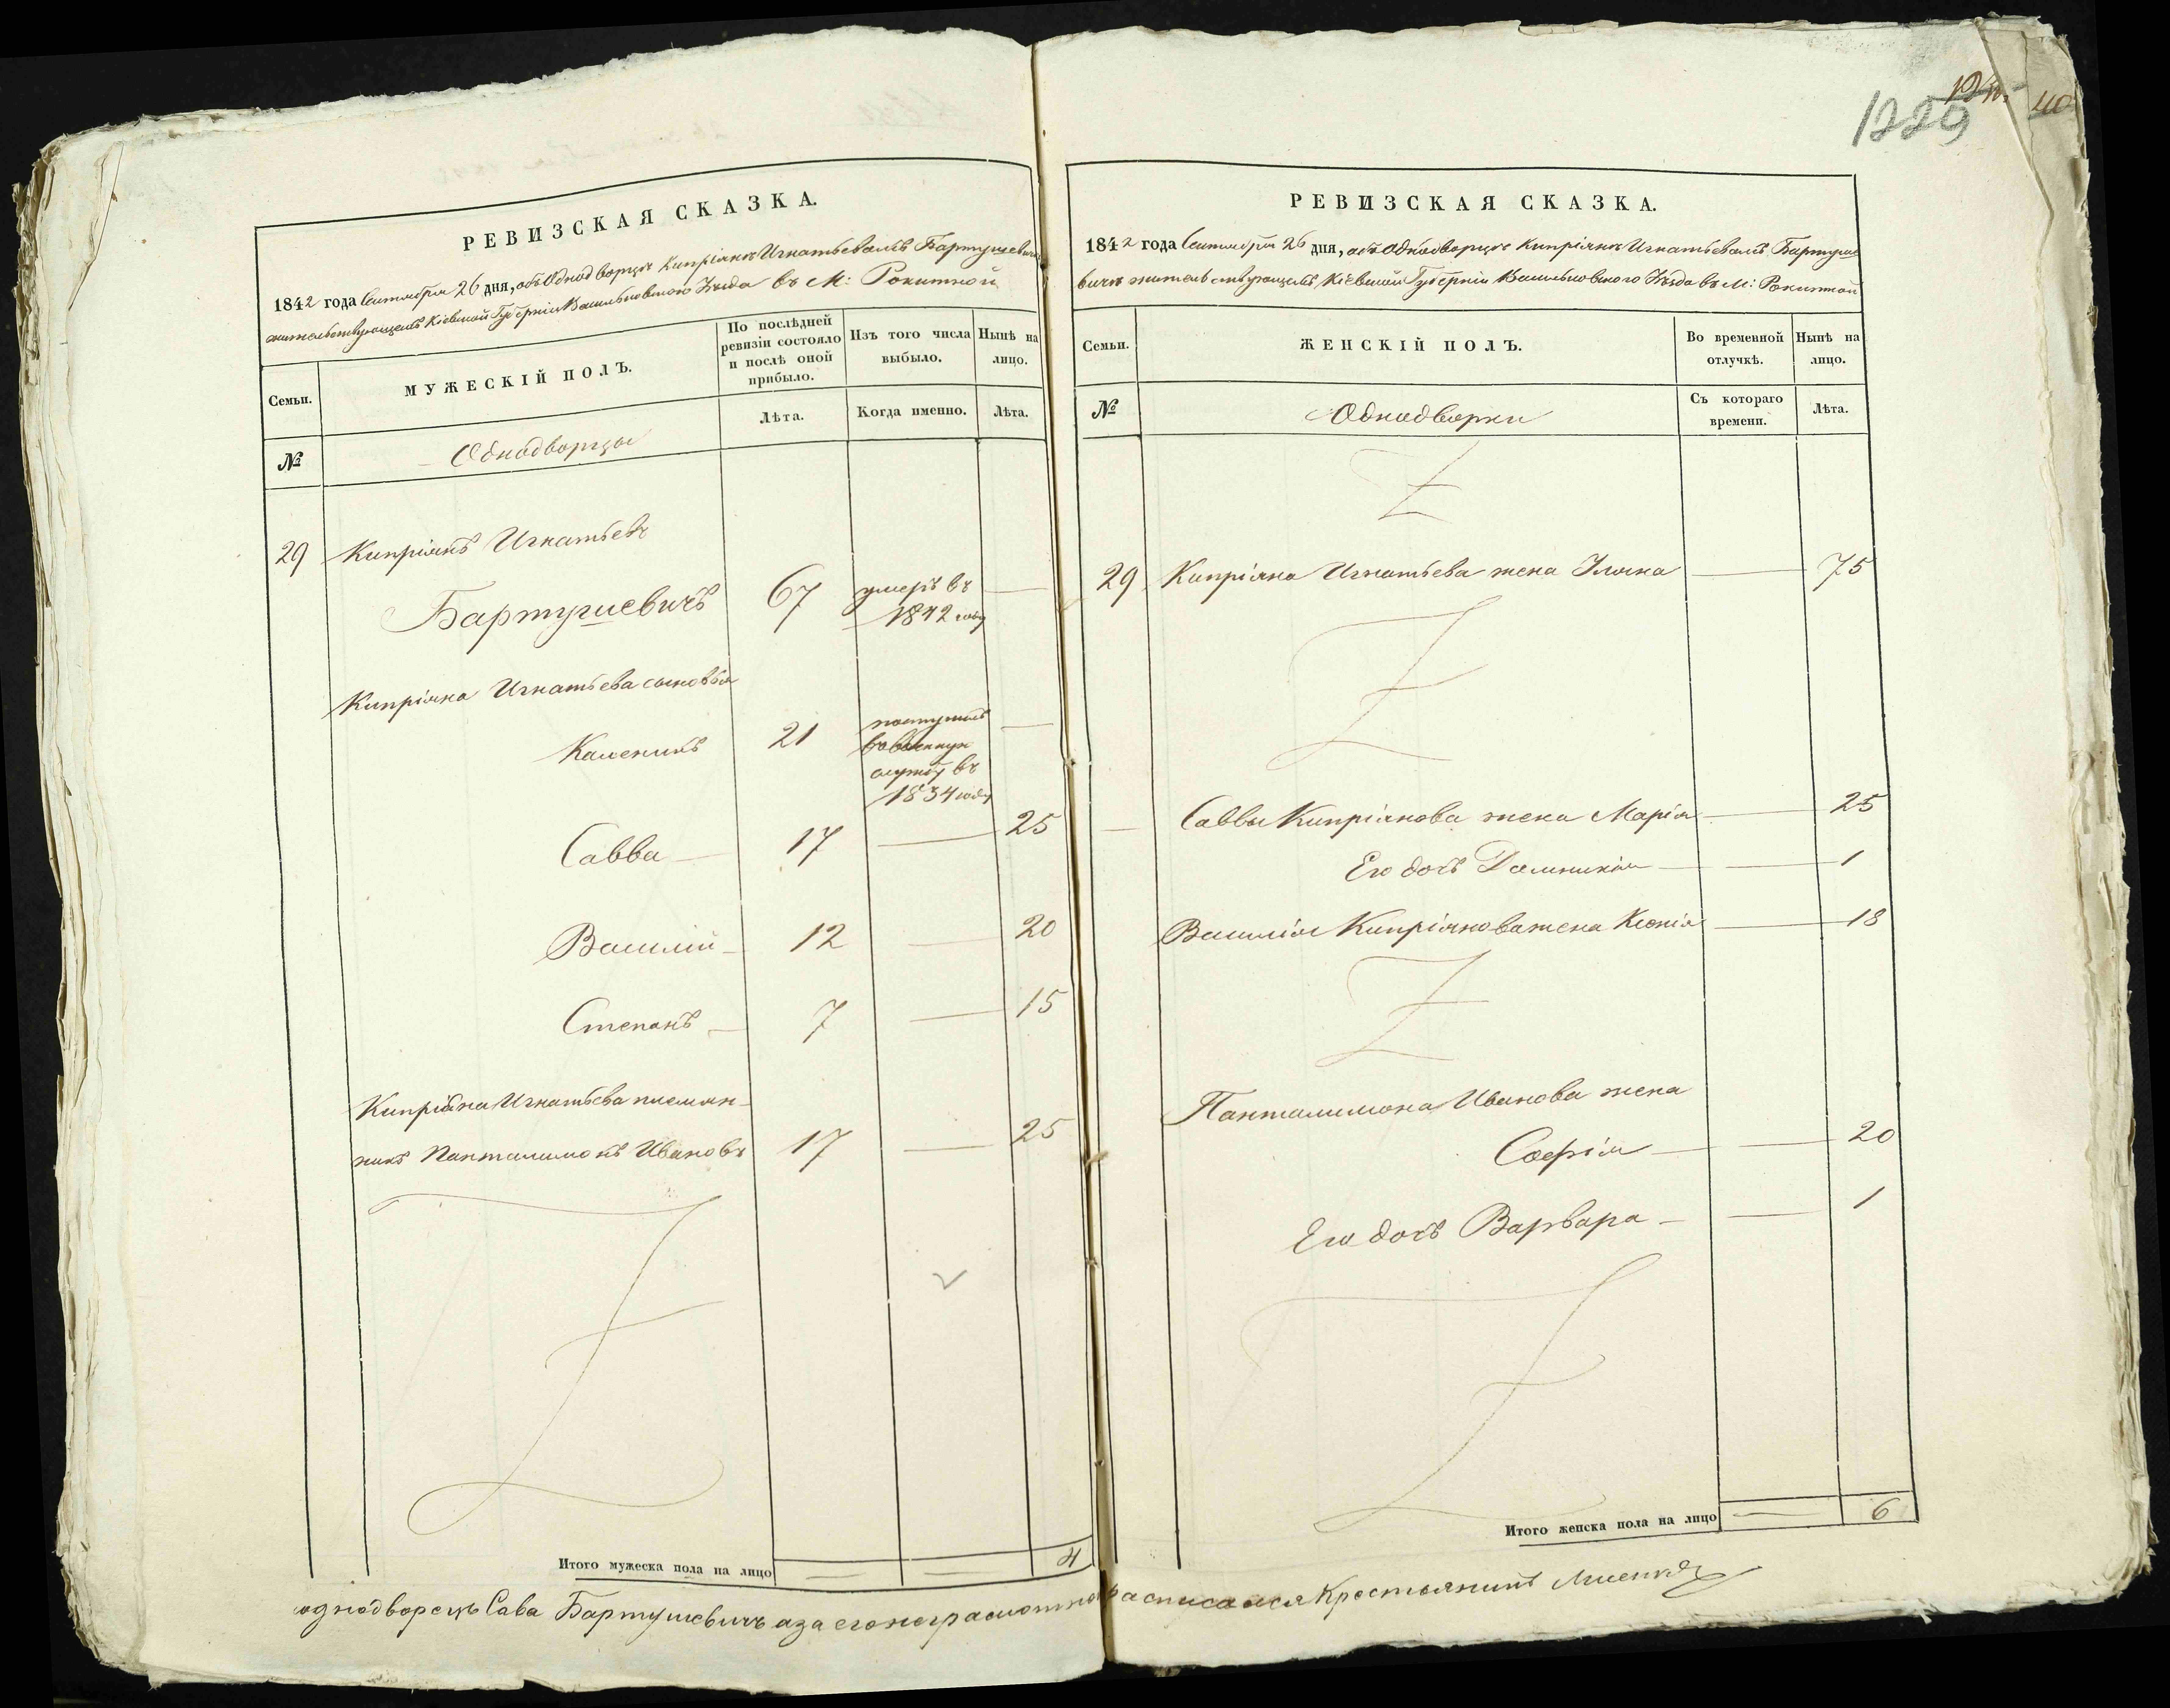 1229
40
РЕВИЗСКАЯ СКАЗКА.
1842 года Сентября 26 дня, объ Однодворцѣ Кипріянѣ Игнатьевомъ Бартушевичѣ
жительствующемъ Кіевской Губерніи Васильковского Уѣзда въ М: Рокитной
Семьи.
МУЖЕСКІЙ ПОЛЪ.
По послѣдней ревизіи состояло и послѣ оной прибыло.
Изъ того числа выбыло.
Нынѣ на лицо.
№
Однодворцы
Лѣта.
Когда именно.
Лѣта.
29 Кипріянъ Игнатьевъ
Бартушевичъ 67 умеръ въ —
1842 году
Кипріяна Игнатьева сыновья
21 поступилъ —
въ военную
службу въ
1834 году
Савва — 17 — 25
Василій — 12 — 20
Степанъ — 7 — 15
Кипріяна Игнатьева племян-
никъ Панталимонъ Ивановъ 17 — 25
Итого мужеска пола на лицо 4
РЕВИЗСКАЯ СКАЗКА.
1842 года Сентября 26 дня, объ Однодворцѣ Кипріянѣ Игнатьевомъ Бартуше
вичѣ жительствующемъ Кіевской Губерніи Васильковского Уѣзда въ М: Рокитной
Семьи.
ЖЕНСКІЙ ПОЛЪ.
Во временной отлучкѣ.
Нынѣ на лицо.
№
Однодворки
Съ котораго времени.
Лѣта.
29 Кипріяна Игнатьева жена — 75
Саввы Кипріянова жена Марія — 25
Его дочь Домникія — 1
Василія Кипріянова жена Ксенія — 18
Панталимона Иванова жена
Софія — 20
Его дочь Варвара — 1
Итого женска пола на лицо — 6
однодворецъ Сава Бартушевичъ а за его неграмотно расписался Крестьянинъ